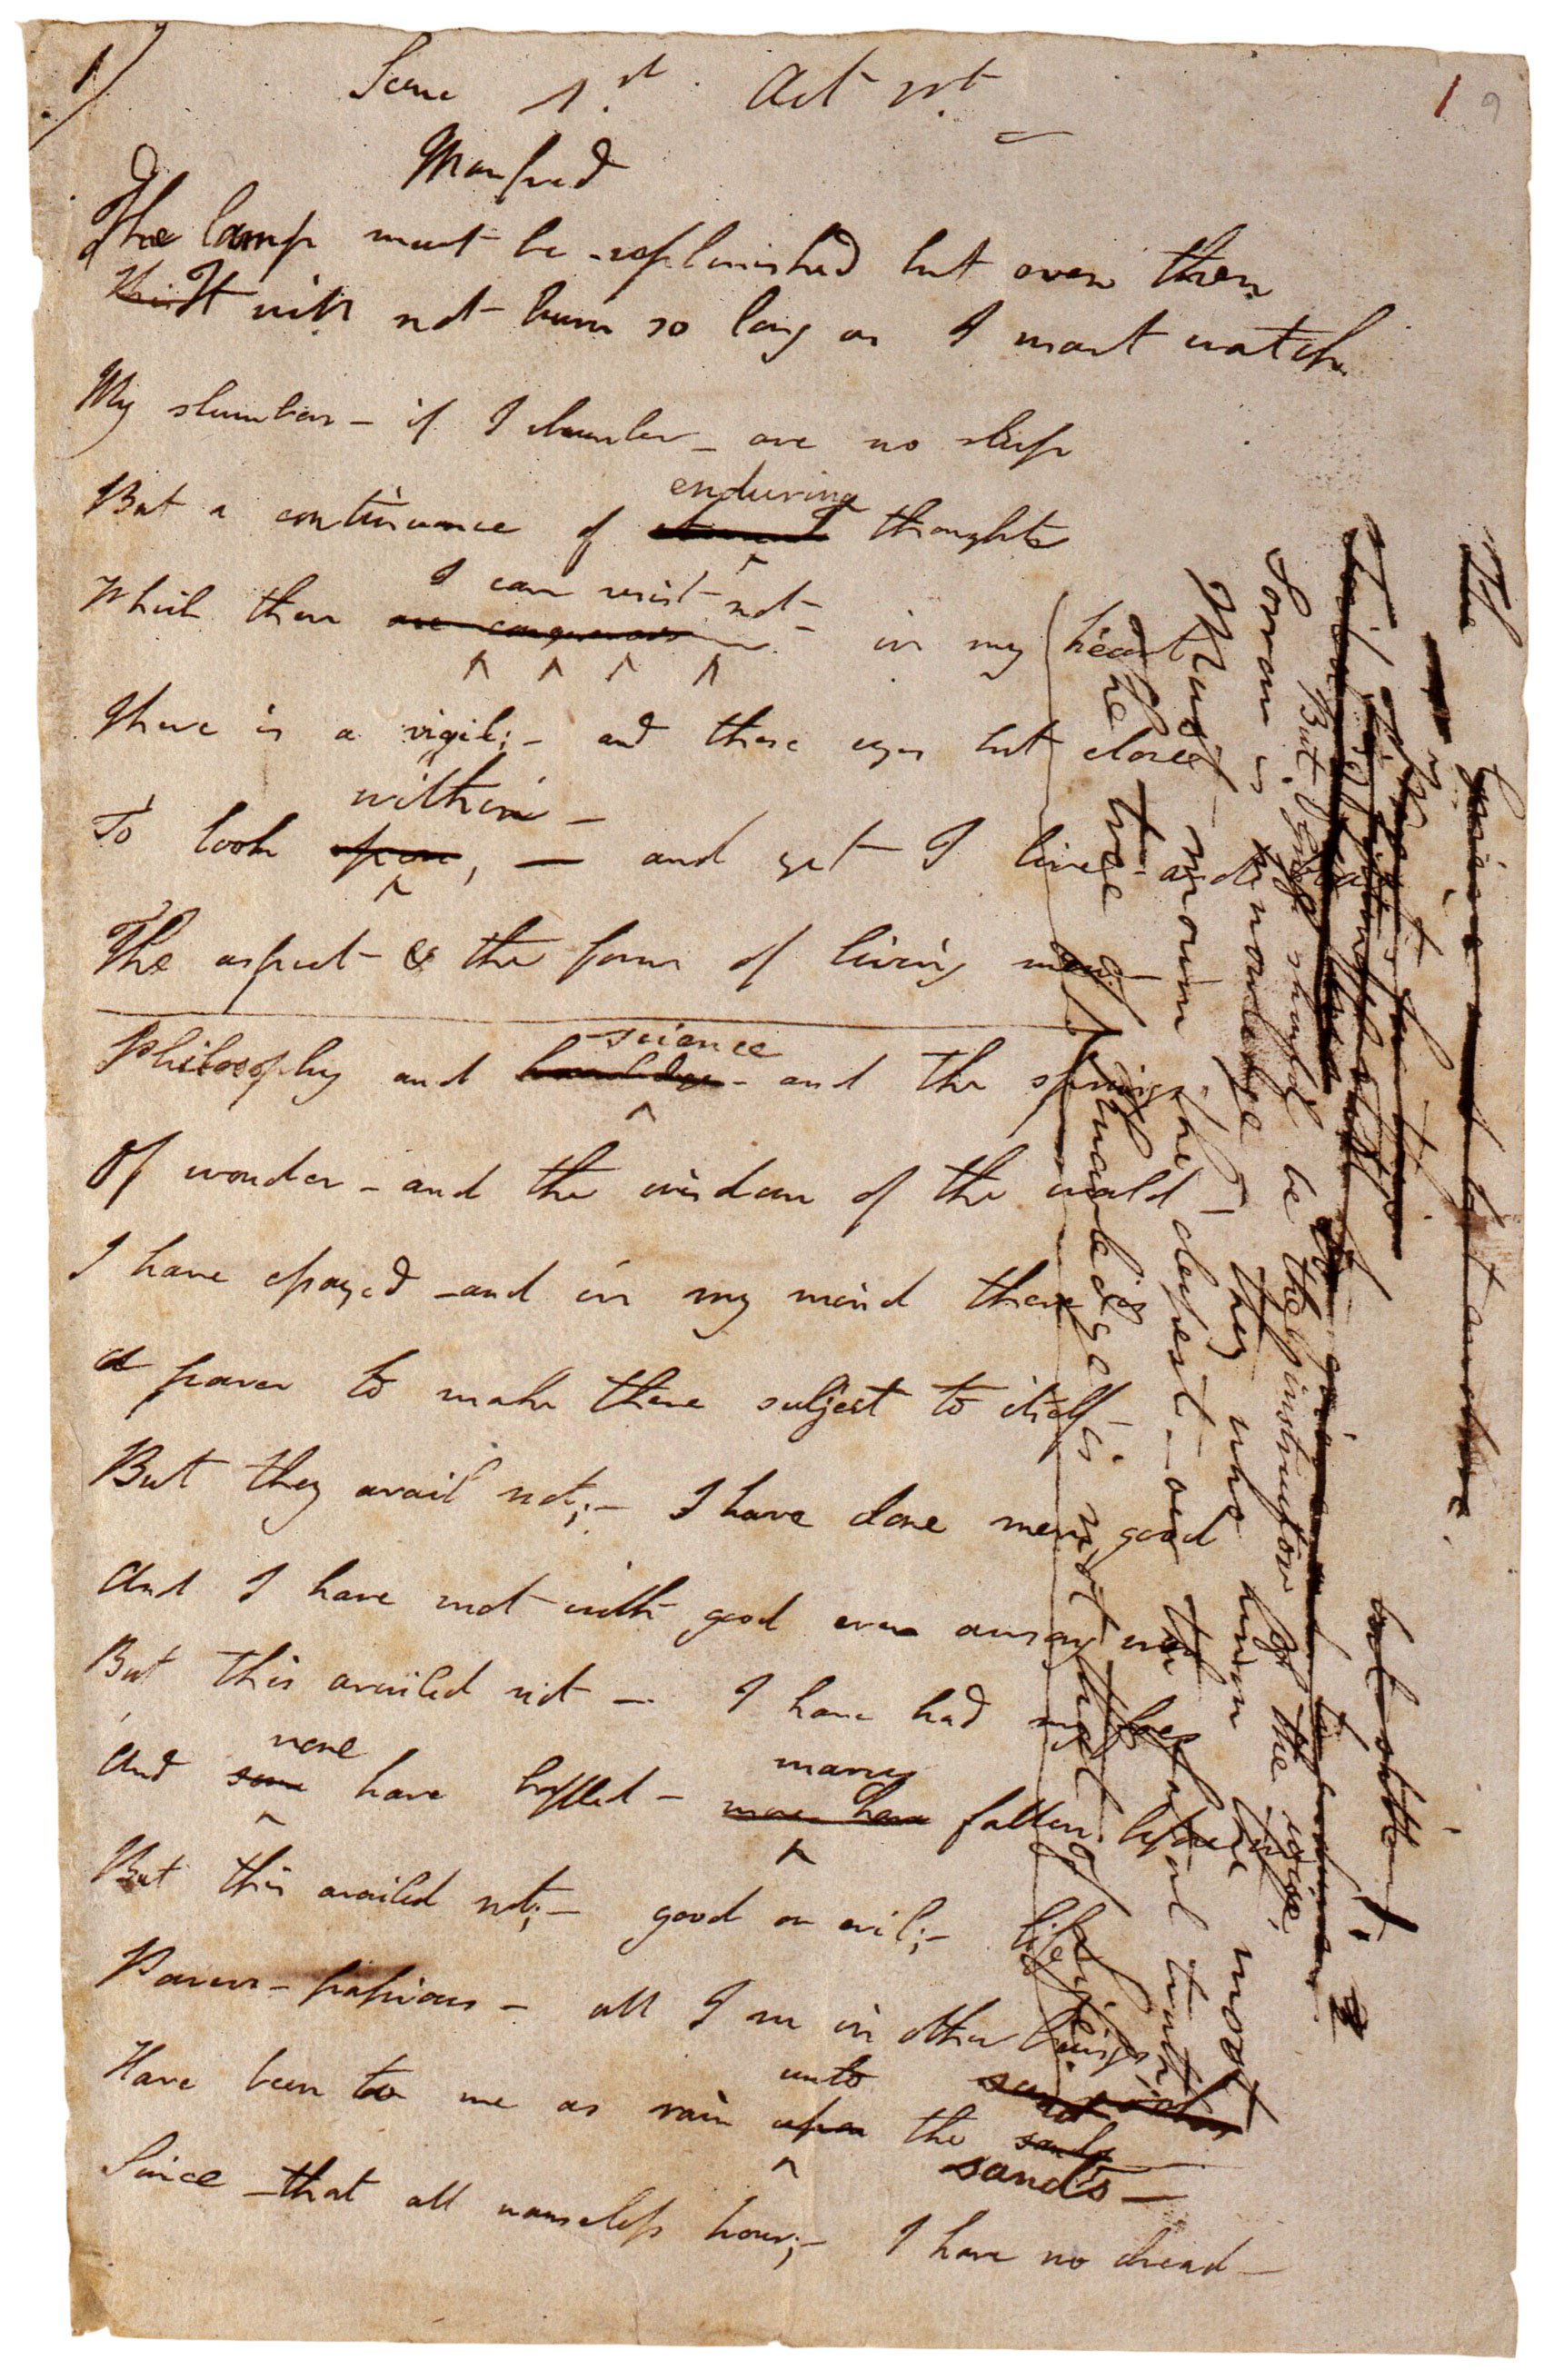 1)
Scene 1.st Act 1st
1 9
Manfred
The lamp must be replenished but even then
It will not burn so long as I must watch.
My slumbers – if I slumber – are no sleep
enduring
But a continuance of thoughts
I can resist not –
Which then are conquerors in my heart
There is a vigil; – and these eyes but close
within –
To look upon, — and yet I live – and bear
The aspect & the form of living men.
science
Philosophy and knowledge – and the springs
Of wonder – and the wisdom of the world –
I have essayed – and in my mind there is
A power to make these subject to itself –
But they avail not; – I have done men good
And I have met with good even among men
But this availed not – I have had my foes
none many
And some have baffled – more have fallen before me
But this availed not; – good or evil; – life
Powers – passions – all I see in other beings
unto
Have been to me as rain upon the
sands –
Since that all nameless hour; – I have no dread –
The tree of knowledge is not that of Life.
Must mourn the deepest – over the fatal truth
Sorrow is knowledge – they who know the most
But Grief should be the instructor of the wise,
The
but another